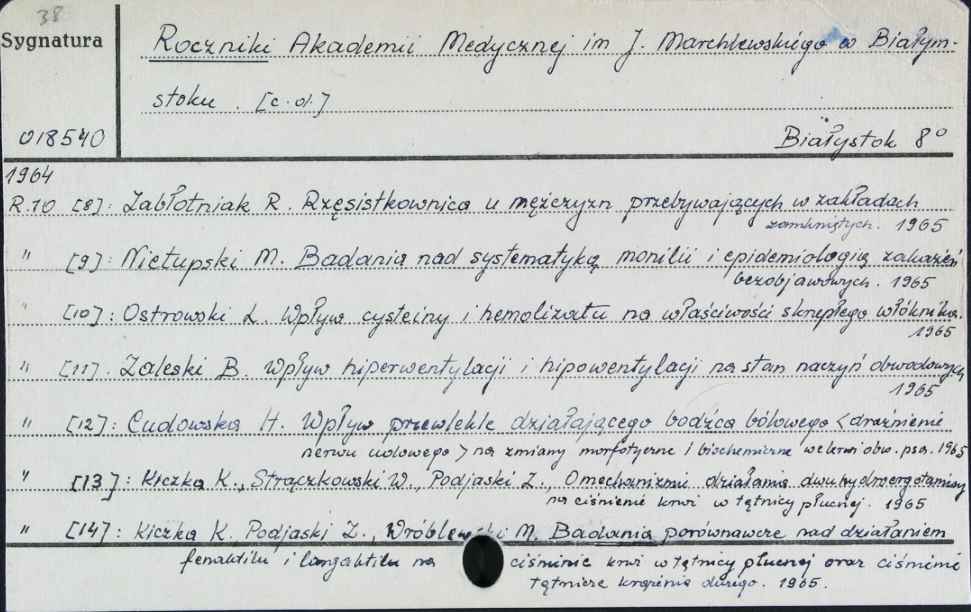 38
Sygnatura
Roczniki Akademii Medycznej im J. Marchlewskiego w Białym-
stoku. [c.d.]
018540
Białystok 8°
1964
R.10 [8]: Zabłotniak R. Rzęsistkownica u mężczyzn przebywających w zakładach
zamkniętych. 1965
" [9]: Nietupski M. Badania nad systematyką monilii i epidemiologią zakażeń
bezobjawowych. 1965
" [10]: Ostrowski L. Wpływ cysteiny i hemolizatu na właściwości skrzepłego włóknika.
1965
" [11]. Zaleski B. Wpływ hiperwentylacji i hipowentylacji na stan naczyń obwodowych
1965
" [12]: Cudowska H. Wpływ przewlekle działającego bodźca bólowego <drażnienie
nerwu udowego> na zmiany morfotyczne i biochemiczne we krwi obw. psa. 1965
" [13]: Kiczka K., Strączkowski W., Podjaski Z., O mechanizmie działania dwuhydroergotaminy
na ciśnienie krwi w tętnicy płucnej. 1965
" [14]: Kiczka K. Podjaski Z., Wróblewski M. Badania porównawcze nad działaniem
fenaktilu i largaktilu na ciśnienie krwi w tętnicy płucnej oraz ciśnienie
tętnicze krążenia dużego. 1965.